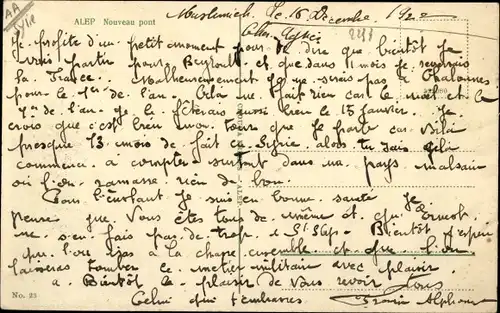 AA
Syrie
ALEP Nouveau pont
Muslimieh, le 16 Décembre 1922
Je profite d'un petit moment pour te dire que bientôt je
vais partir pour Beyrouth et que dans 1 mois je reverrai
la France. Malheureusement je ne serais pas à Chalonnes
pour le 1er de l'an. Cela ne fait rien car le noël et le
1er de l'an je le fêterais aussi bien le 15 janvier. Je
crois que c'est bien mon tour que je parte car voilà
presque 13 mois de fait en Syrie alors tu sais çela
commence à compter surtout dans un pays malsain
où l'on ramasse rien de bon.
Pour l'instant je suis en bonne santé je
pense que vous êtes tous de même et qu'Ernest
ne s'en fais pas de trop à St Bientôt j'espère
que l'on ira à la chasse ensemble et que l'on
laissera tomber le métier militaire avec plaisir.
à Bientôt le plaisir de vous revoir tous
Celui qui t'embrasse. Alphonse
No. 23